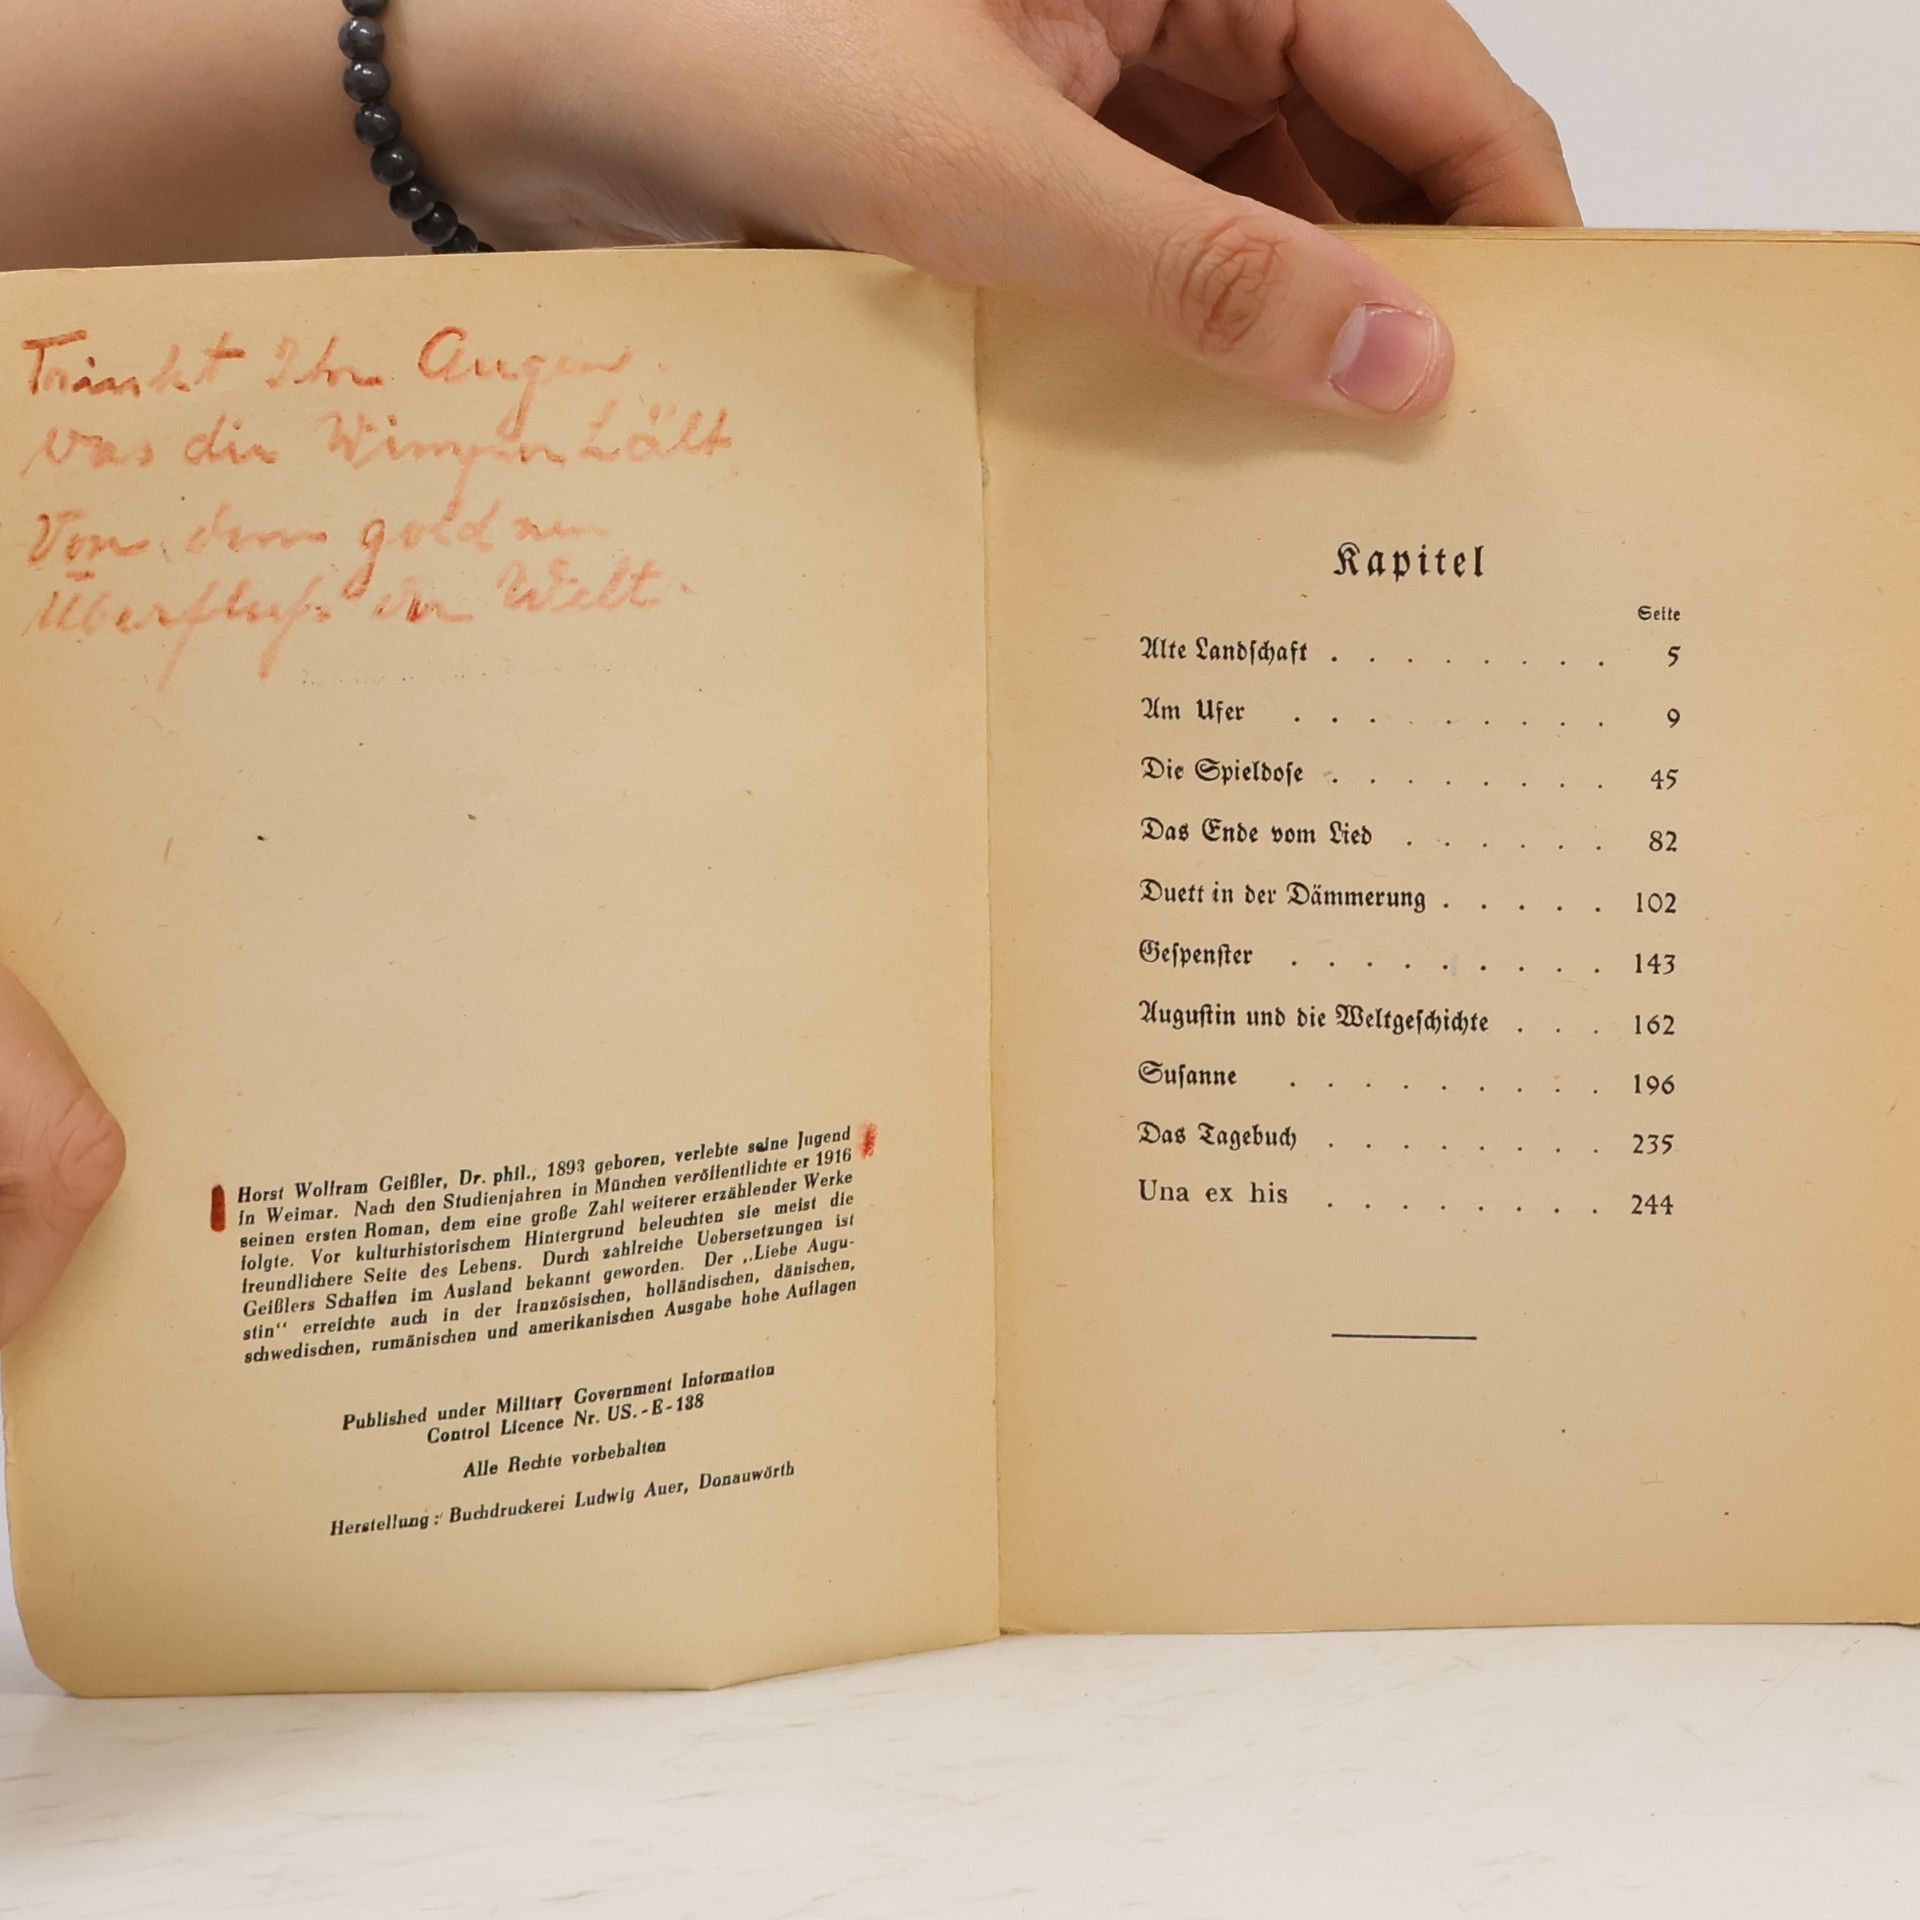 Trinkt Ihr Augen.
was die Wimper hält
Von dem goldnen
Überfluß der Welt.
Horst Wolfram Geißler, Dr. phil., 1893 geboren, verlebte seine Jugend
in Weimar. Nach den Studienjahren in München veröffentlichte er 1916
seinen ersten Roman, dem eine große Zahl weiterer erzählender Werke
folgte. Vor kulturhistorischem Hintergrund beleuchten sie meist die
freundlichere Seite des Lebens. Durch zahlreiche Uebersetzungen ist
Geißlers Schaffen im Ausland bekannt geworden. Der „Liebe Augu-
stin“ erreichte auch in der französischen, holländischen, dänischen,
schwedischen, rumänischen und amerikanischen Ausgabe hohe Auflagen
Published under Military Government Information
Control Licence Nr. US.-E-138
Alle Rechte vorbehalten
Herstellung: Buchdruckerei Ludwig Auer, Donauwörth
Kapitel
Seite
Alte Landschaft . . . . . . . . 5
Am Ufer . . . . . . . . . 9
Die Spieldose . . . . . . . . 45
Das Ende vom Lied . . . . . . 82
Duett in der Dämmerung . . . . . 102
Gespenster . . . . . . . . . 143
Augustin und die Weltgeschichte . . . 162
Susanne . . . . . . . . . 196
Das Tagebuch . . . . . . . . 235
Una ex his . . . . . . . . 244